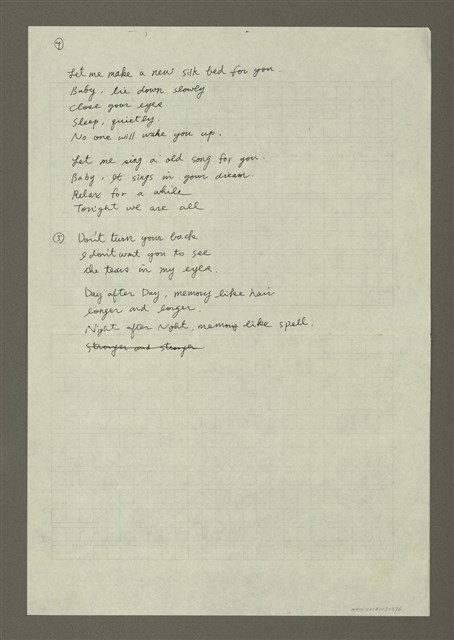 ④
Let me make a new silk bed for you.
Baby, lie down slowly
Close your eyes
Sleep, quietly.
No one will wake you up.
Let me sing a old song for you.
Baby, It sings in your dream.
Relax for a while
Tonight we are all
⑤ Don't turn your back
I don't wat you to see
the tears in my eyes.
Day after Day, memory like hair
longer and longer.
Night after Night, memory like spell.
Stronger and stronger